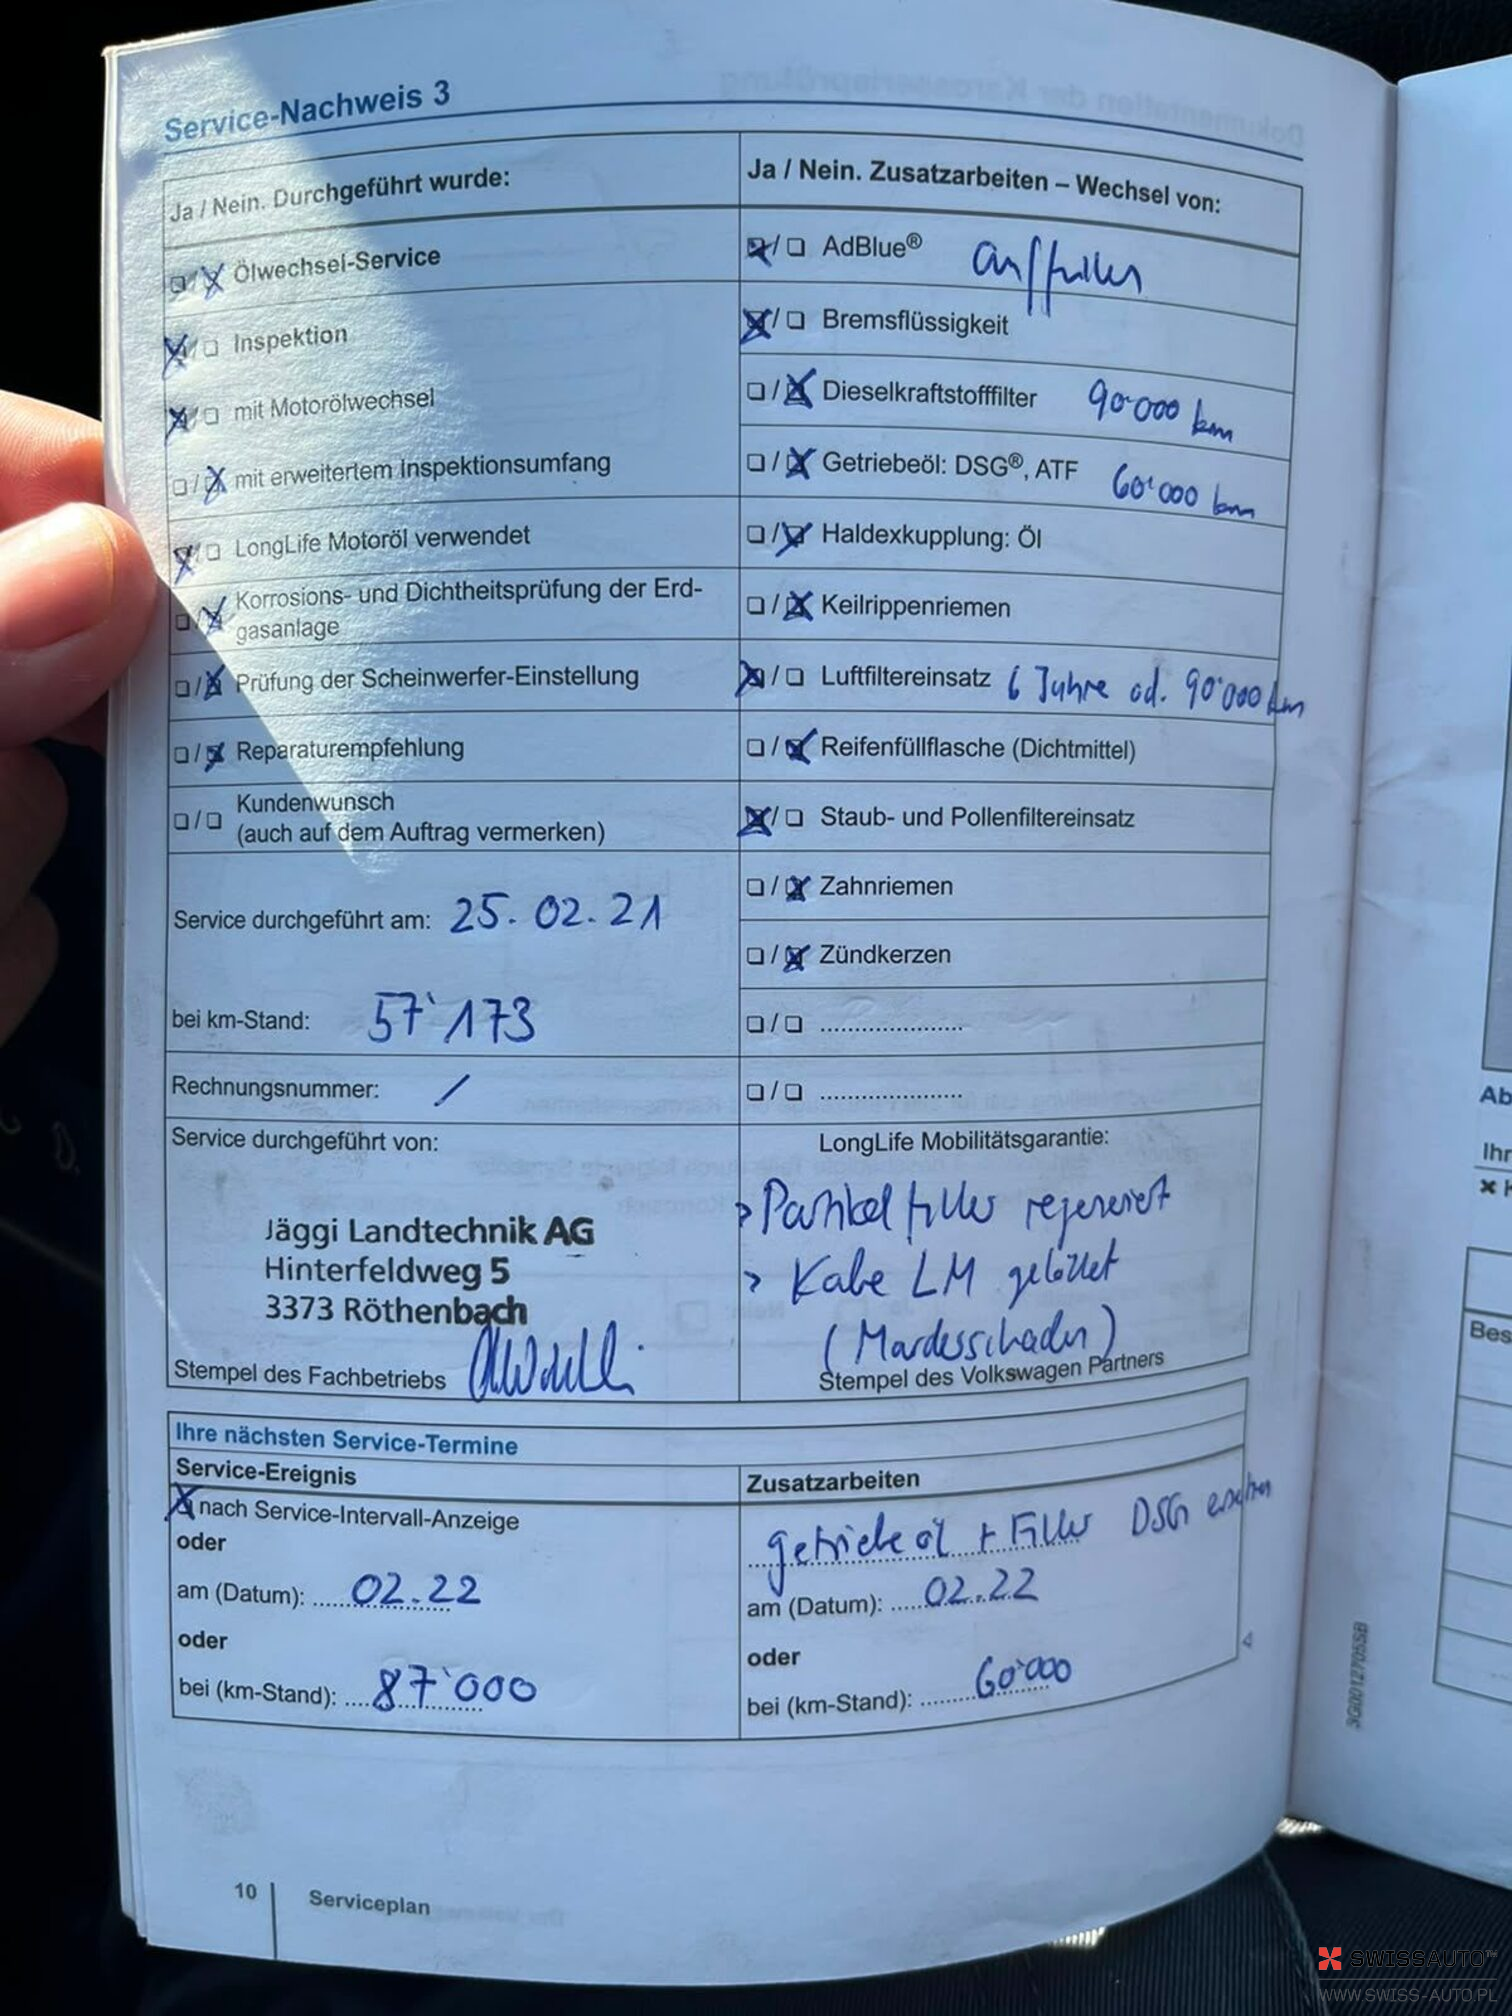 Service-Nachweis 3
Ja / Nein. Durchgeführt wurde:
❏/❏ Ölwechsel-Service
❏/❏ Inspektion
❏/❏ mit Motorölwechsel
❏/❏ mit erweitertem Inspektionsumfang
❏/❏ LongLife Motoröl verwendet
❏/❏ Korrosions- und Dichtheitsprüfung der Erd-
gasanlage
❏/❏ Prüfung der Scheinwerfer-Einstellung
❏/❏ Reparaturempfehlung
❏/❏ Kundenwunsch
(auch auf dem Auftrag vermerken)
Service durchgeführt am: 25.02.21
bei km-Stand: 57'173
Rechnungsnummer: /
Service durchgeführt von:
Jäggi Landtechnik AG
Hinterfeldweg 5
3373 Röthenbach
Stempel des Fachbetriebs
Ja / Nein. Zusatzarbeiten – Wechsel von:
❏/❏ AdBlue® auffüllen
❏/❏ Bremsflüssigkeit
❏/❏ Dieselkraftstofffilter 90'000 km
❏/❏ Getriebeöl: DSG®, ATF 60'000 km
❏/❏ Haldexkupplung: Öl
❏/❏ Keilrippenriemen
❏/❏ Luftfiltereinsatz 6 Jahre od. 90'000 km
❏/❏ Reifenfüllflasche (Dichtmittel)
❏/❏ Staub- und Pollenfiltereinsatz
❏/❏ Zahnriemen
❏/❏ Zündkerzen
❏/❏ .....................
❏/❏ .....................
LongLife Mobilitätsgarantie:
> Partikelfilter regeneriert
> Kabe LM gelötet
(Marderschaden)
Stempel des Volkswagen Partners
Ihre nächsten Service-Termine
Service-Ereignis
nach Service-Intervall-Anzeige
oder
am (Datum): 02.22
oder
bei (km-Stand): 87'000
Zusatzarbeiten
getriebeöl + Filter DSG
am (Datum): 02.22
oder
bei (km-Stand): 60'000
4
10 Serviceplan
3G0012705SB
Ab
Ihr
Bes
SWISSAUTO™
WWW.SWISS-AUTO.PL